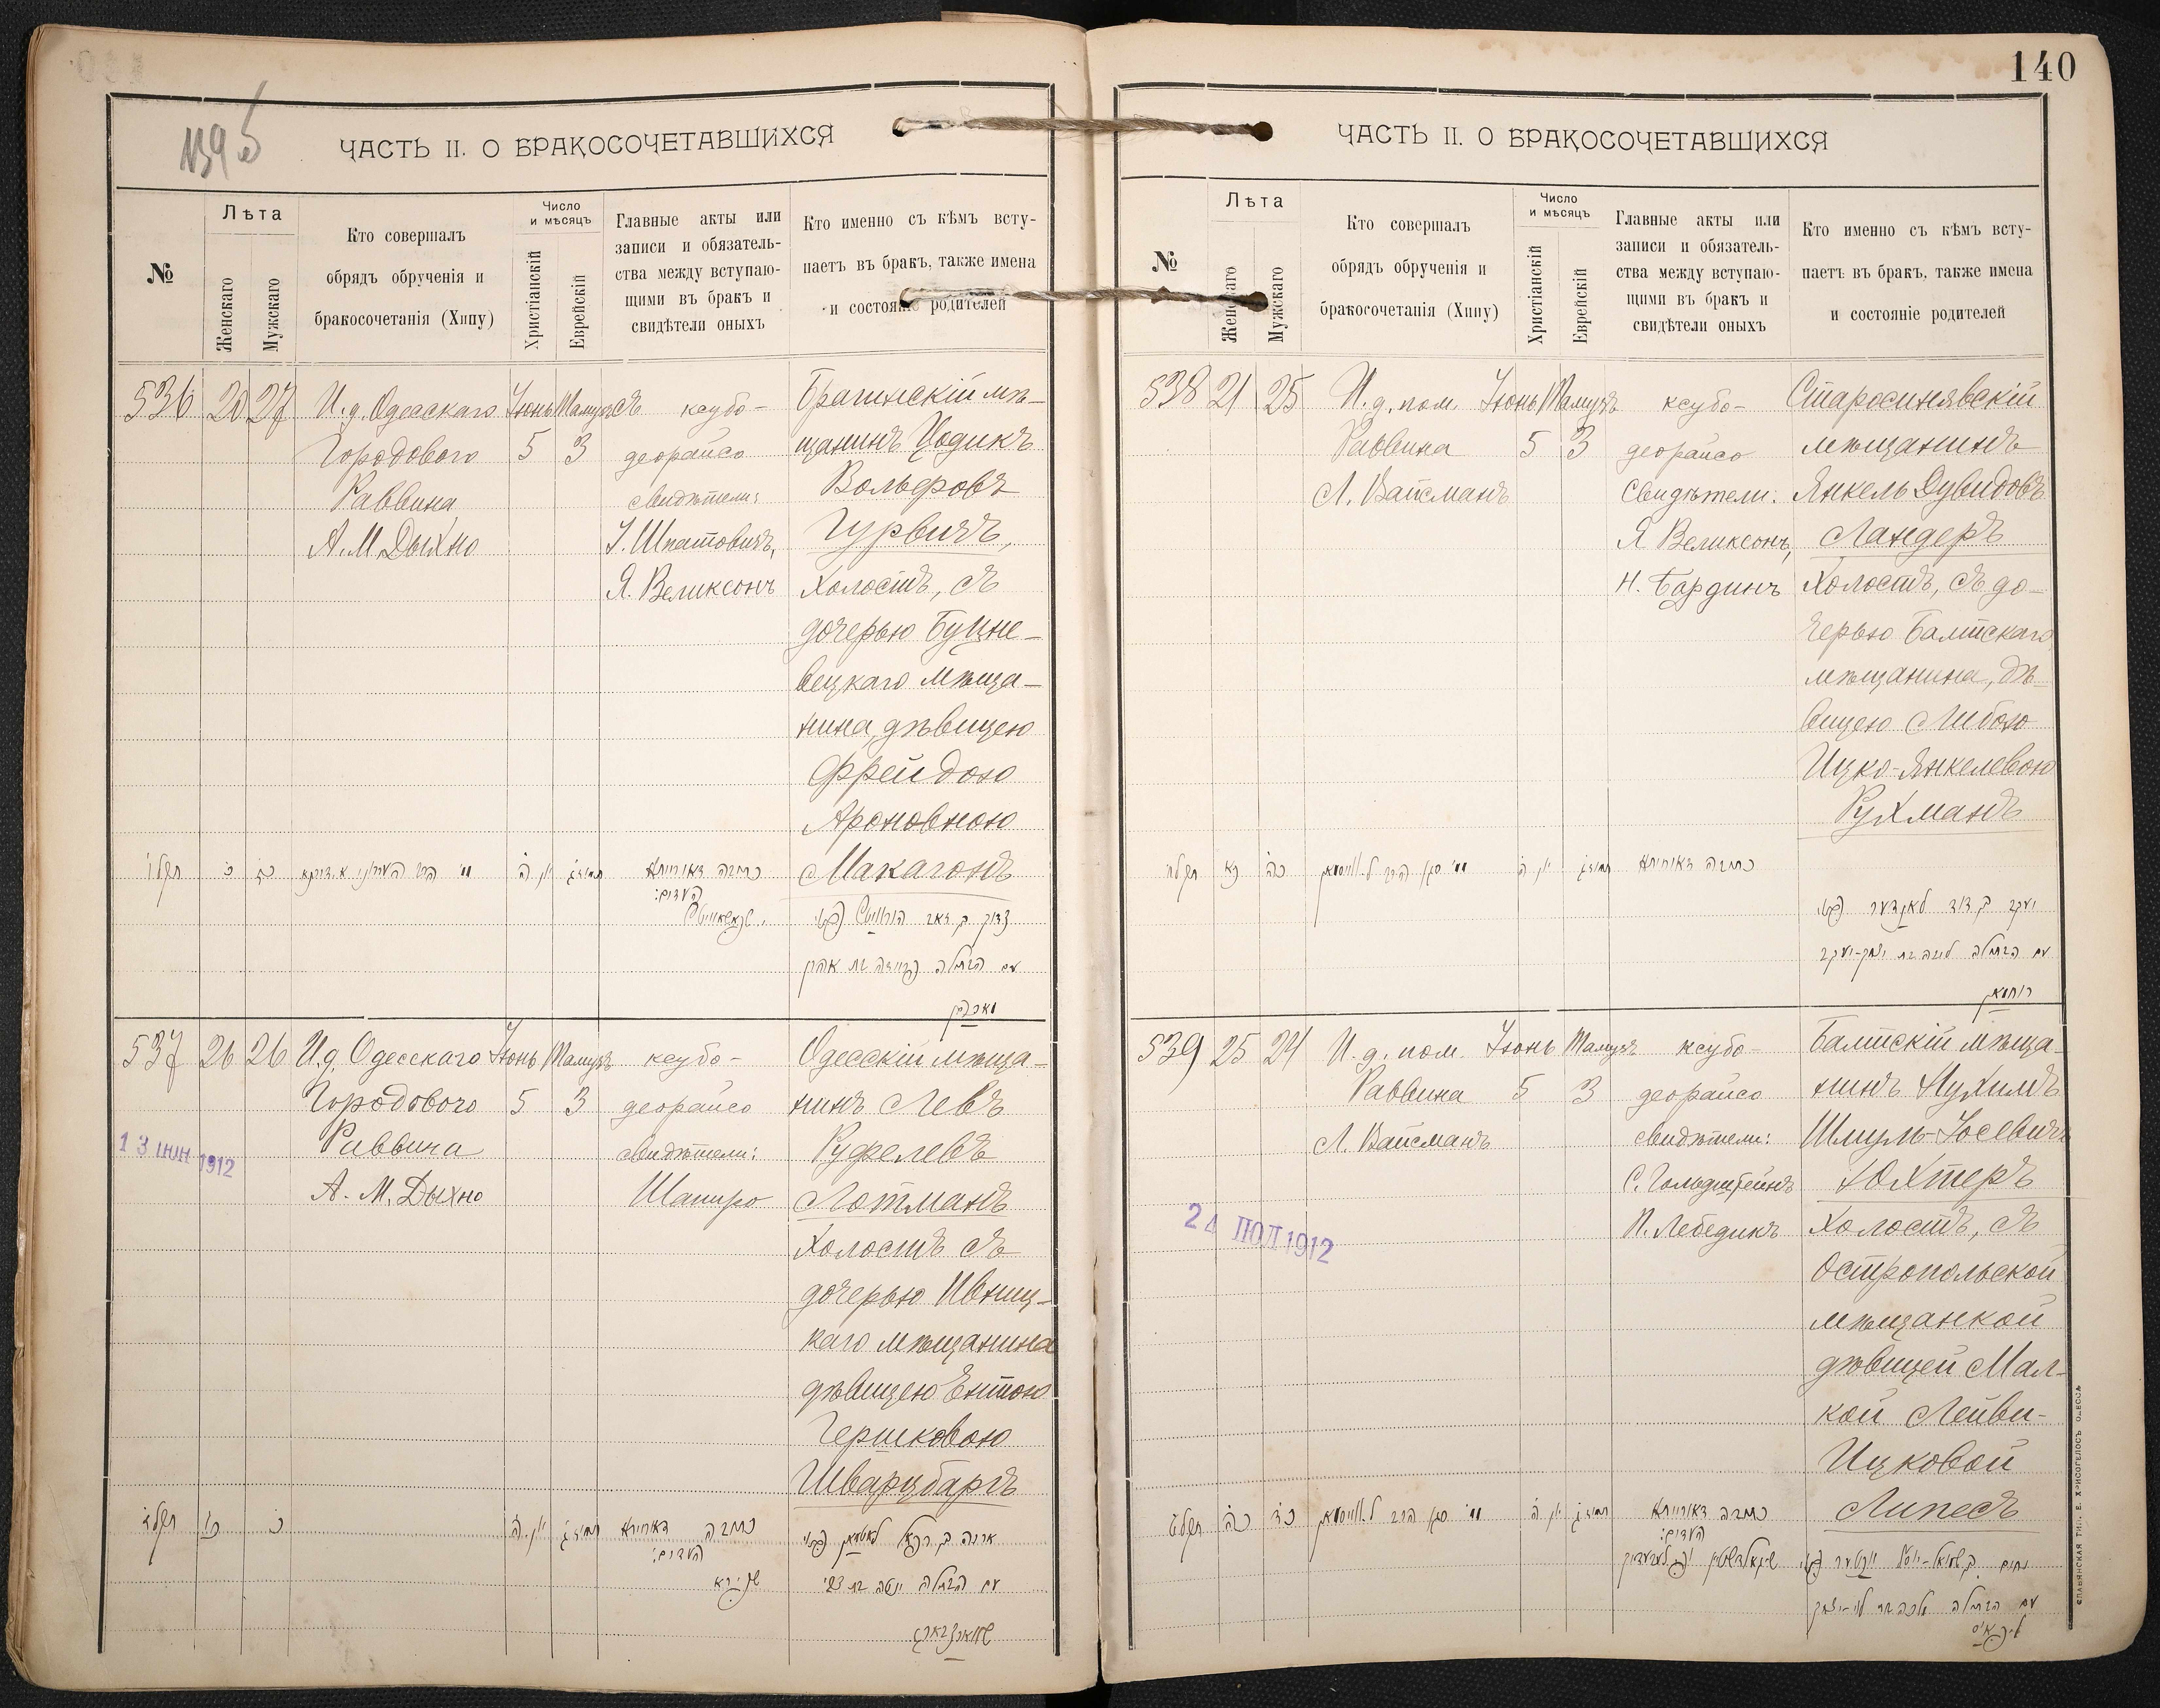 139б
ЧАСТЬ II. О БРАКОСОЧЕТАВШИХСЯ
№
Лѣта
Женскаго
Мужскаго
Кто совершалъ
обрядъ обрученія и
бракосочетанія (Хипу)
Число
и мѣсяцъ
Христіанскій
Еврейскій
Главные акты или
записи и обязатель-
ства между вступаю-
щими въ бракъ и
свидѣтели оныхъ
Кто именно съ кѣмъ всту-
паетъ въ бракъ, также имена
и состояніе родителей
536 20 27
И.д. Одесскаго
Городового
Раввина
А.М. Дыхно
Іюнь
5
Тамузъ
3
съ ксубо-
деорайсо
свидѣтели:
І. Шпатовичъ,
Я. Великсонъ
Брагинскій мѣ-
щанинъ Цодикъ
Вольфовъ
Гурвичъ,
холостъ, съ
дочерью Буцне-
вецкаго мѣща-
нина, дѣвицею
Фрейдою
Ароновною
Макагонъ
כתובה דאורייתא
העדים:
עם הבתולה פריידה בת אהרן
מאכאגן
537 26 26
И.д. Одесскаго
Городового
Раввина
А. М. Дыхно
Іюнь
5
Тамузъ
3
ксубо-
деорайсо
свидѣтели:
Шапиро
Одесскій мѣща-
нинъ Левъ
Руфелевъ
Лотманъ
холостъ съ
дочерью Ивниц-
каго мѣщанина
дѣвицею Ентою
Гершковою
Шварцбаргъ
13 ІЮН 1912
כתובה דאורייתא
העדים:
שפירא
עם הבתולה יענטה בת צבי
שווארצבארג
140
ЧАСТЬ II. О БРАКОСОЧЕТАВШИХСЯ
№
Лѣта
Женскаго
Мужскаго
Кто совершалъ
обрядъ обрученія и
бракосочетанія (Хипу)
Число
и мѣсяцъ
Христіанскій
Еврейскій
Главные акты или
записи и обязатель-
ства между вступаю-
щими въ бракъ и
свидѣтели оныхъ
Кто именно съ кѣмъ всту-
паетъ въ бракъ, также имена
и состояніе родителей
538 21 25
И.д. пом.
Раввина
Л. Вайсманъ
Іюнь
5
Тамузъ
3
ксубо-
деорайсо
Свидѣтели.
Я Великсонъ,
Н. Бардинъ
Старосинявскій
мѣщанинъ
Янкель Дувидовъ
Ландеръ
холостъ, съ до-
черью Балтскаго
мѣщанина, дѣ-
вицею Либою
Ицко-Янкелевою
Рухманъ
כתובה דאורייתא
יעקב בן דוד לאנדער
עם הבתולה ליבה בת יצחק-יעקב
רוחמאן
539 25 24
И.д. пом.
Раввина
Л. Вайсманъ
Іюнь
5
Тамузъ
3
ксубо-
деорайсо
свидѣтели:
С. Гольдштейнъ
П. Лебедикъ
Балтскій мѣща-
нинъ Нухимъ
Шмуль-Іосевичъ
Юхтеръ
холостъ, съ
Остропольской
мѣщанкой
дѣвицей Мал-
кой Лейви-
Ицковой
Липесъ
24 ІЮЛ 1912
כתובה דאורייתא
העדים:
עם הבתולה מלכה בת לוי-יצחק
СЛАВЯНСКАЯ ТИП. Е. ХРИСОГЕЛОСЪ ОДЕССА